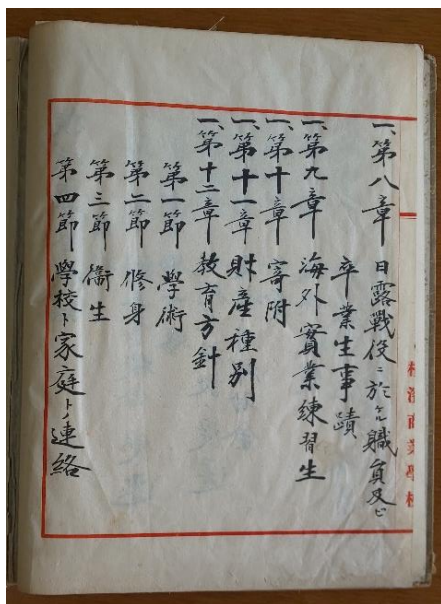 一、第八章 日露戰役ニ於ケル職員及ビ
卒業生事蹟
一、第九章 海外實業練習生
一、第十章 寄附
一、第十一章 財產種別
一、第十二章 教育方針
第一節 學術
第二節 修身
第三節 衞生
第四節 學校ト家庭トノ連絡
商業學校